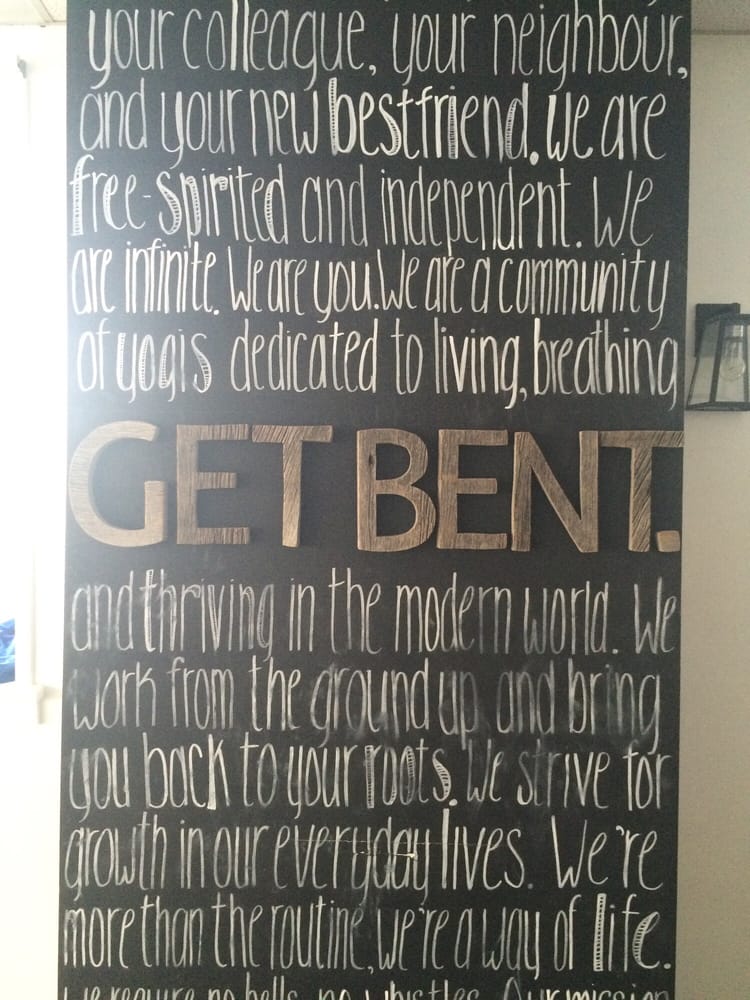 your colleague, your neighbour,
and your new bestfriend. We are
free-spirited and independent. We
are infinite. We are you. We are a community
of yogis dedicated to living, breathing
GET BENT.
and thriving in the modern world. We
work from the ground up and bring
you back to your roots. We strive for
growth in our everyday lives. We're
more than the routine, we're a way of life.
We require no bells, no whistles. Our mission